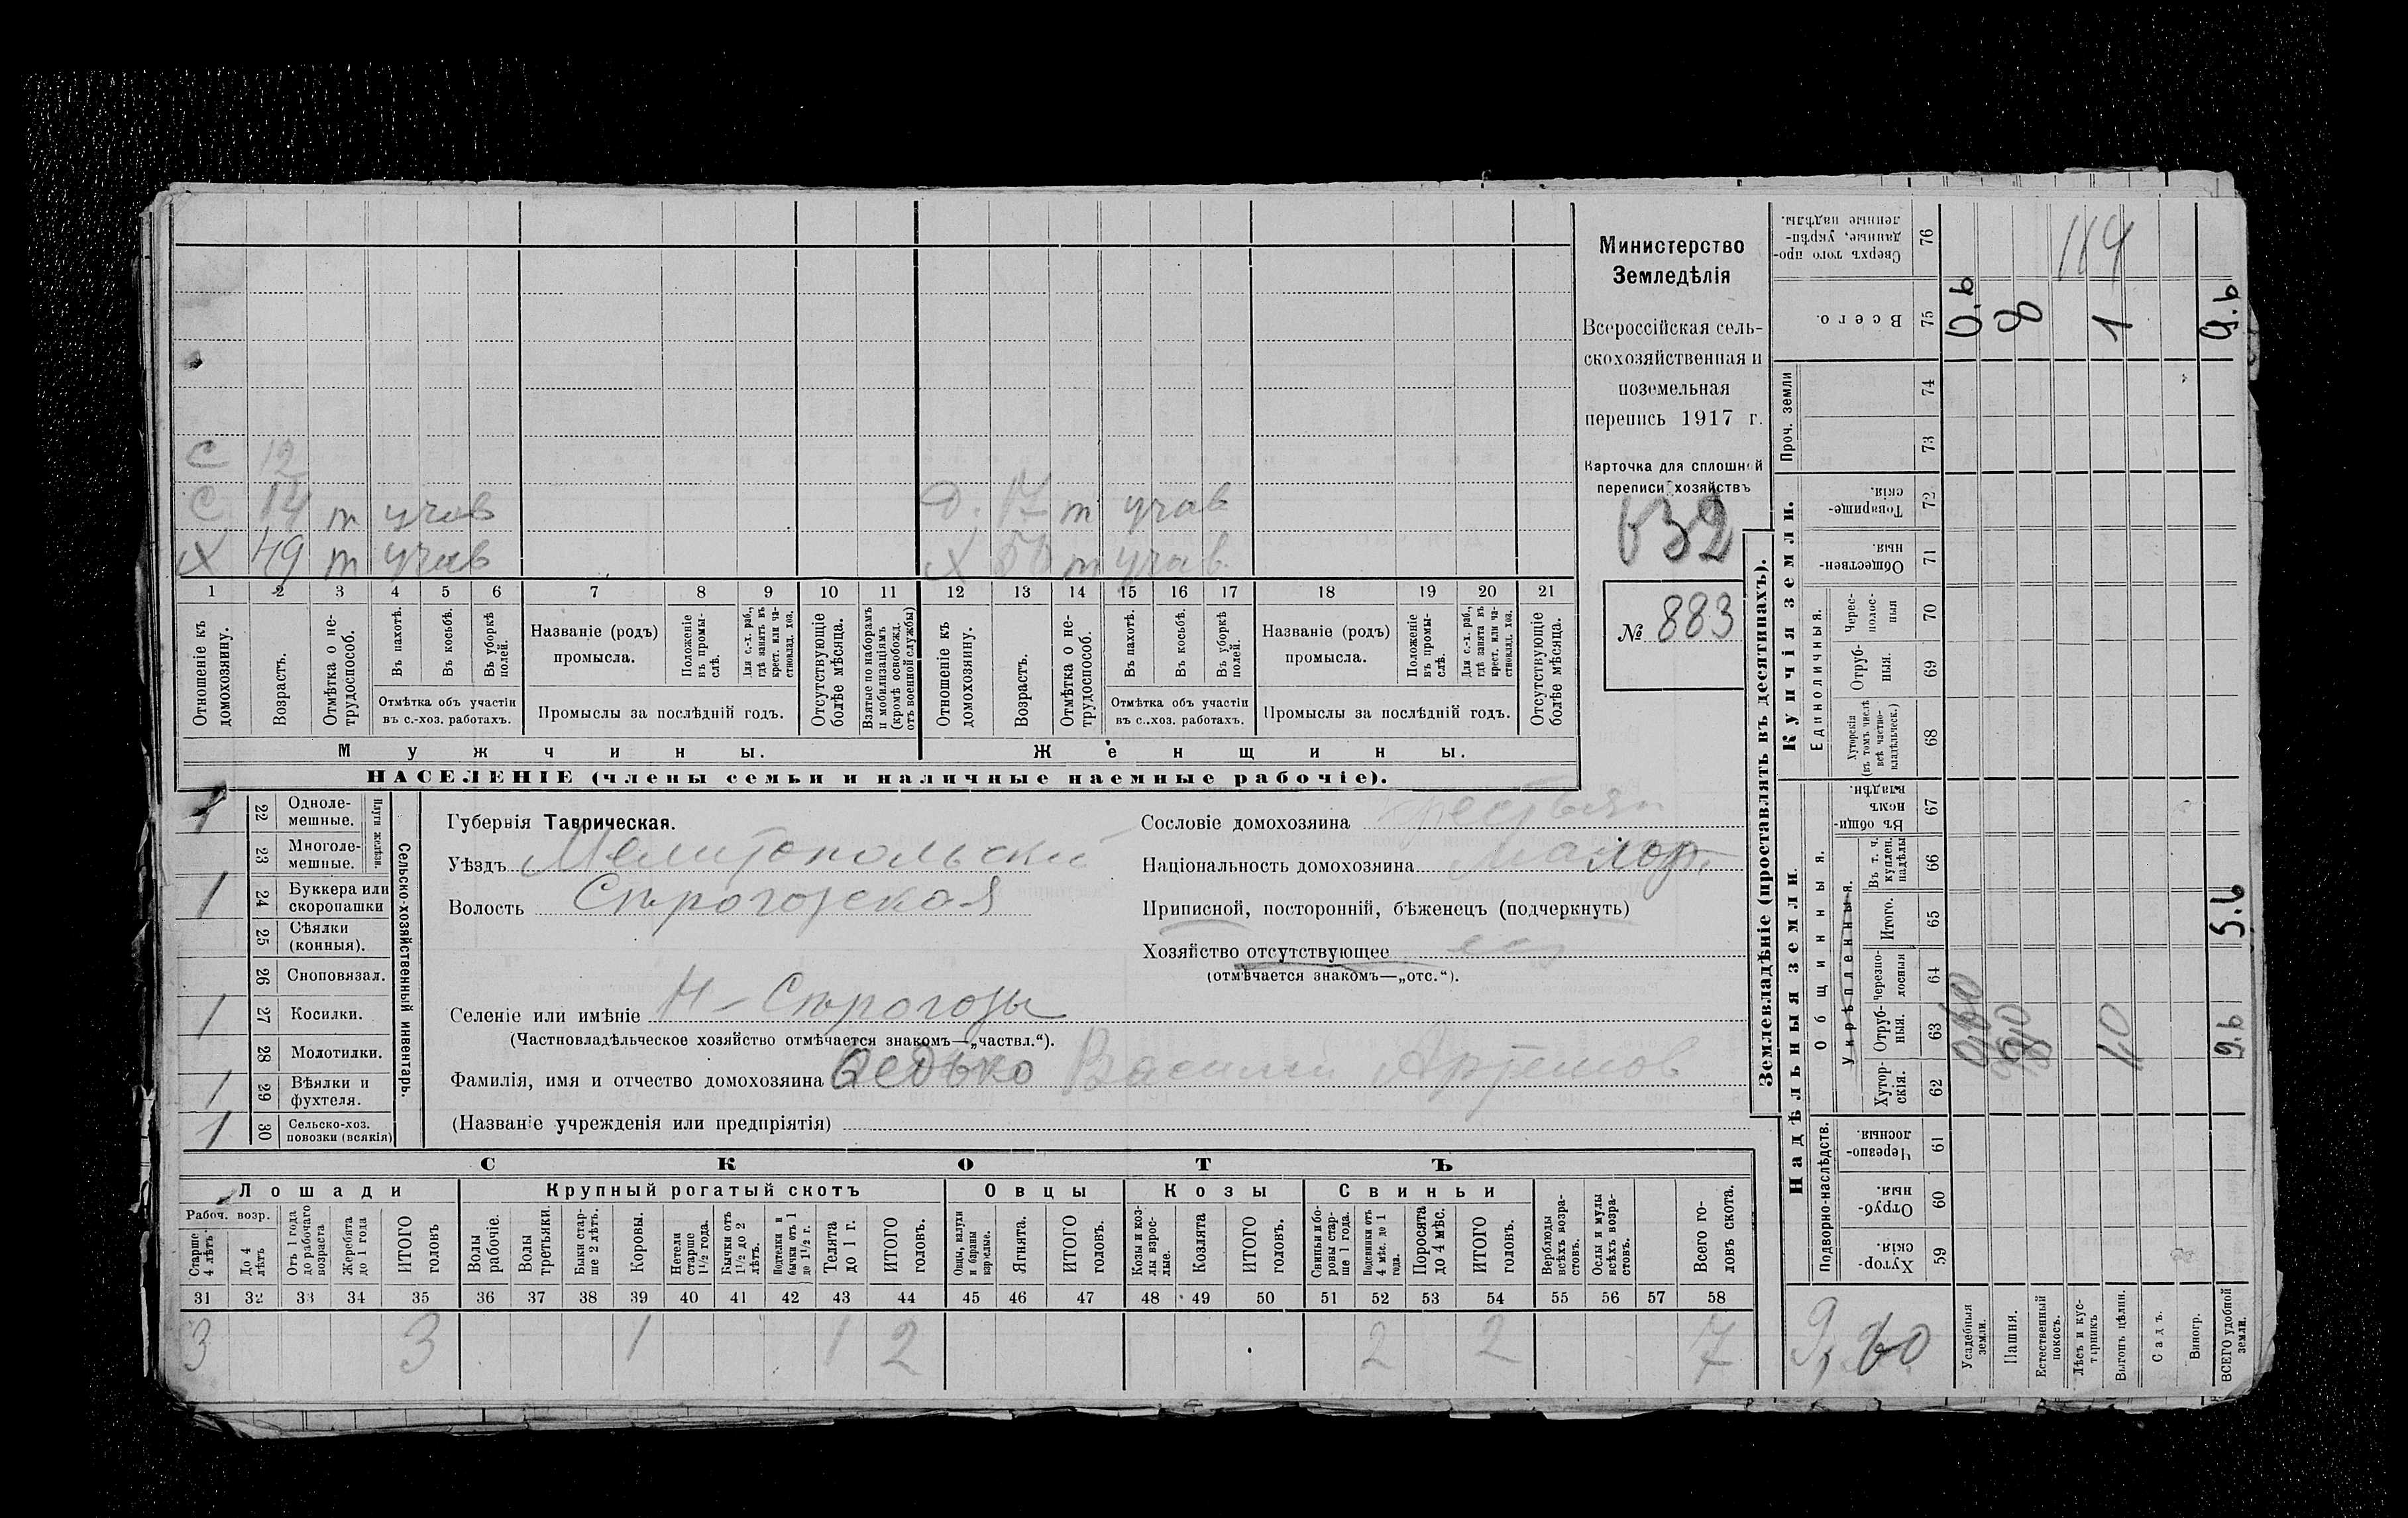 С 12
С 14 т учав Д. 17 т учав
Х 49 т учав Х 50 т учав
1 2 3 4 5 6 7 8 9 10 11 12 13 14 15 16 17 18 19 20 21
Отношеніе къ домохозяину.
Возрастъ.
Отмѣтка о не-трудоспособ.
Въ пахотѣ.
Въ косьбѣ.
Въ уборкѣ полей.
Отмѣтка объ участіи
въ с.-хоз. работахъ.
Названіе (родъ)
промысла.
Положеніе въ промы-слѣ.
Для с.-х. раб., гдѣ занятъ въ крест. или ча-стновлад. хоз.
Промыслы за послѣдній годъ.
Отсутствующіе болѣе мѣсяца.
Взятые по наборамъ и мобилизаціямъ (кромѣ освобожд. отъ военной службы)
Отношеніе къ домохозяину.
Возрастъ.
Отмѣтка о не-трудоспособ.
Въ пахотѣ.
Въ косьбѣ.
Въ уборкѣ полей.
Отмѣтка объ участіи
въ с.-хоз. работахъ.
Названіе (родъ)
промысла.
Положеніе въ промы-слѣ.
Для с.-х. раб., гдѣ занята въ крест. или ча-стновлад. хоз.
Промыслы за послѣдній годъ.
Отсутствующіе болѣе мѣсяца.
Мужчины. Женщины.
НАСЕЛЕНІЕ (члены семьи и наличные наемные рабочіе).
Министерство
Земледѣлія
Всероссійская сель-
скохозяйственная и
поземельная
перепись 1917 г.
Карточка для сплошной
переписи хозяйствъ
632
№ 883
Сельско-хозяйственный инвентарь.
Плуги желѣзн.
1 22 Одноле-мешные.
23 Многоле-мешные.
1 24 Буккера или скоропашки
25 Сѣялки (конныя).
26 Сноповязал.
1 27 Косилки.
28 Молотилки.
1 29 Вѣялки и фухтеля.
1 30 Сельско-хоз. повозки (всякія)
Губернія Таврическая.
Уѣздъ Мелитопольскій
Волость Сѣрогозская
Селеніе или имѣніе Н-Сѣрогозы
(Частновладѣльческое хозяйство отмѣчается знакомъ—„частвл.“).
Фамилія, имя и отчество домохозяина Василій Артемов
(Названіе учрежденія или предпріятія)
Сословіе домохозяина крестьян
Національность домохозяина Малор.
Приписной, посторонній, бѣженецъ (подчеркнуть)
Хозяйство отсутствующее
(отмѣчается знакомъ—„отс.“).
СКОТЪ
Лошади Крупный рогатый скотъ Овцы Козы Свиньи
Рабоч. возр.
Старше 4 лѣтъ
До 4 лѣтъ
Отъ 1 года до рабочаго возраста
Жеребята до 1 года
ИТОГО головъ
Волы рабочіе.
Волы третьяки.
Быки стар-ше 2 лѣтъ.
Коровы.
Нетели старше 1½ года.
Бычки отъ 1½ до 2 лѣтъ.
Подтелки и бычки отъ 1 до 1½ г.
Телята до 1 г.
ИТОГО головъ.
Овцы, валухи и бараны взрослые.
Ягнята.
ИТОГО головъ.
Козы и коз-лы взрос-лые.
Козлята
ИТОГО головъ.
Свиньи и бо-ровы стар-ше 1 года.
Подсвинки отъ 4 мѣс. до 1 года.
Поросята до 4 мѣс.
ИТОГО головъ.
Верблюды всѣхъ возра-стовъ.
Ослы и мулы всѣхъ возра-стовъ.
Всего го-ловъ скота.
31 32 33 34 35 36 37 38 39 40 41 42 43 44 45 46 47 48 49 50 51 52 53 54 55 56 57 58
3 3 1 1 2 2 2 7
Землевладѣніе (проставлять въ десятинахъ).
Надѣльныя земли.
Купчія земли.
Проч. земли
Подворно-наслѣдств.
Общинныя.
Укрѣпленныя.
Единоличныя.
59 Хутор-скія.
60 Отруб-ныя.
61 Черезпо-лосныя.
62 Хутор-скія.
63 Отруб-ныя.
64 Черезпо-лосныя
65 Итого.
66 Въ т. ч. куплен. надѣлы
67 Въ общин-номъ владѣн.
68 Хуторскія (въ томъ числѣ всѣ частно-владѣльческ.)
69 Отруб-ныя.
70 Черес-полос-ныя
71 Обществен-ныя.
72 Товарище-скія.
73
74
75 Всего.
76 Сверхъ того про-данные, укрѣп-ленные надѣлы.
Усадебныя земли. 0,60 0.6
Пашня. 8
Естественный покосъ.
Лѣсъ и кус-тарникъ
Выгонъ цѣлин. 1,0 1
Садъ.
Виногр.
ВСЕГО удобной земли. 9.6 9.6
9,60
114